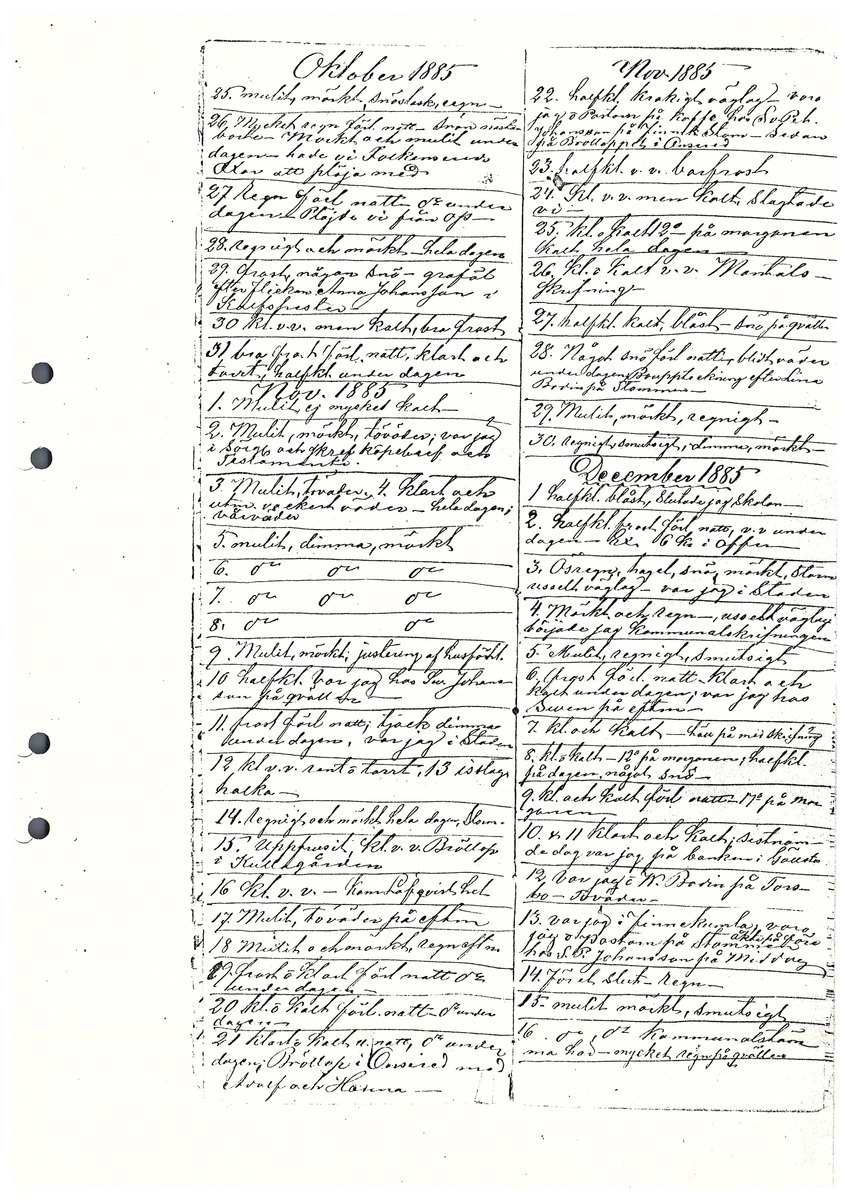 Oktober 1885
25. mulit, mörkt, snöslask, regn —
26. Mycket regn förl. natt — snön nästan
borta — Mörkt och mulit under
dagen — hade vi Folkenserids
Oxar att plöja med
27 Regn förl natt — do under
dagen — Plöjde vi från oss —
28. regnigt och mörkt — hela dagen
29. frost, någon snö — grafäl
efter flickan Anna Johansson i
30 kl. v.v. men kalt, bra frost
31 bra frost förl. natt, klart och
torrt, halfkl. under dagen
Nov. 1885
1. Mulit, ej mycket kalt —
2. Mulit, mörkt, töväder; var jag
i Sorgb och skref köpebref och
Testamente.
3. Mulit, töväder, 4. klart och
utm. vackert väder — hela dagen;
vårväder
5. mulit, dimma, mörkt
6. do do do
7. do do do
8. do do
9. Mulit, mörkt; justering af husförhl.
10 halfkl. var jag hos Sv. Johans
son på qvällen —
11. frost förl natt; tjock dimma
under dagen, var jag i Staden
12 kl v.v. rent o torrt, 13 isslag
halka —
14. regnigt och mörkt hela dagen, Storm —
15. Uppfrusit, kl. v.v. Bröllop
i Kullagården
16 kl. v.v. — kom Löfqvist hit
17. Mulit, töväder på eftm
18 Mulit och mörkt, regn eftm
19. frost o klart förl natt do
under dagen —
20 kl. o kalt förl. natt — do under
dagen —
21 klart o kalt u. natt, do under
dagen; Bröllop i Onsered med
Adolf och Hanna —
Nov. 1885
22. halfkl, krokigt väglag — voro
jag o Pastorn på kaffe hos Sv. P.
Johansson på Finnek Stom — sedan
på Bröllopet i Onsered
23. halfkl. v. v. barfrost
24. kl. v.v. men kalt, Slagtade
vi —
25. kl. o kalt 12° på morgonen
kalt hela dagen —
26. kl. o kalt v.v. Mantals —
skrifning —
27. halfkl. kalt, blåst — snö på qvälln
28. Något snö förl. natt; blidt väder
under dagen, Bouppteckning efter Lina
Bodin på Stommen —
29. Mulit, mörkt, regnigt —
30. regnigt, smutsigt, dimma, mörkt —
December 1885
1 halfkl. blåst, Slutade jag Skolan —
2. halfkl. frost förl. natt, v.v under
dagen — 6 Kr i Offer —
3. Ösregn, hagel, snö, mörkt, Storm
uselt väglag — var jag i Staden
4. Mörkt och regn —, uselt väglag
började jag Kommunalskrifningen
5 Mulit, regnigt, smutsigt
6. frost förl. natt — klart och
kalt under dagen; var jag hos
Sven på eftm —
7. kl och kalt — höll på med skrifning
8. kl. o kalt — 12° på morgonen; halfkl.
på dagen, något snö —
9. kl. och kalt förl natt — 17° på mor
gonen —
10. & 11 klart och kalt; sistnäm-
da dag var jag på banken i Gällsta
12 var jag o W. Bodin på Tors
bo —
13. var jag i Finnekumla, voro
jag o Pastorn på Stommen
hos S. P. Johansson på Middag
14. före slut — regn —
15. mulit mörkt, smutsigt
16. do, do Kommunalstäm
ma höd — mycket regn på qvällen